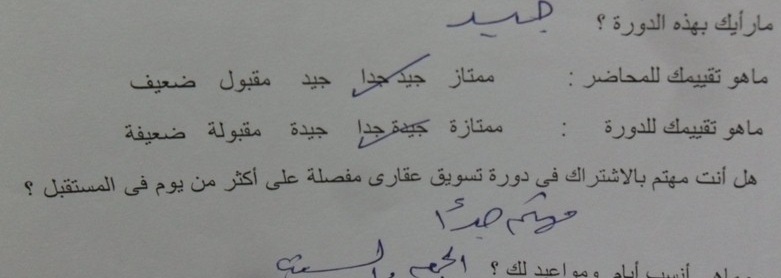 مارأيك بهذه الدورة ؟ جيد
ماهو تقييمك للمحاضر : ممتاز جيد جدا جيد مقبول ضعيف
ماهو تقييمك للدورة : ممتازة جيدة جدا جيدة مقبولة ضعيفة
هل أنت مهتم بالاشتراك فى دورة تسويق عقارى مفصلة على أكثر من يوم فى المستقبل ؟
مهتم جدًا
وماهى أنسب أيام ومواعيد لك ؟ الجمعه والسبت